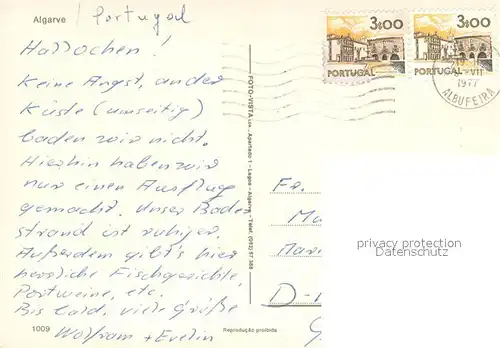 Algarve / Portugal
Hallöchen!
Keine Angst, an der
Küste (umseitig)
baden wir nicht.
Hierhin haben wir
nur einen Ausflug
gemacht. Unser Bade-
strand ist ruhiger.
Außerdem gibt's hier
herrliche Fischgerichte,
Portweine, etc.
Bis bald, viele Grüße
Wolfram + Evelin
1009
Reprodução proibida
FOTO-VISTA Lda. Apartado 1 - Lagos - Algarve
3$00
PORTUGAL
3$00
PORTUGAL
VII
1977
ALBUFEIRA
Fr.
D-
privacy protection
Datenschutz